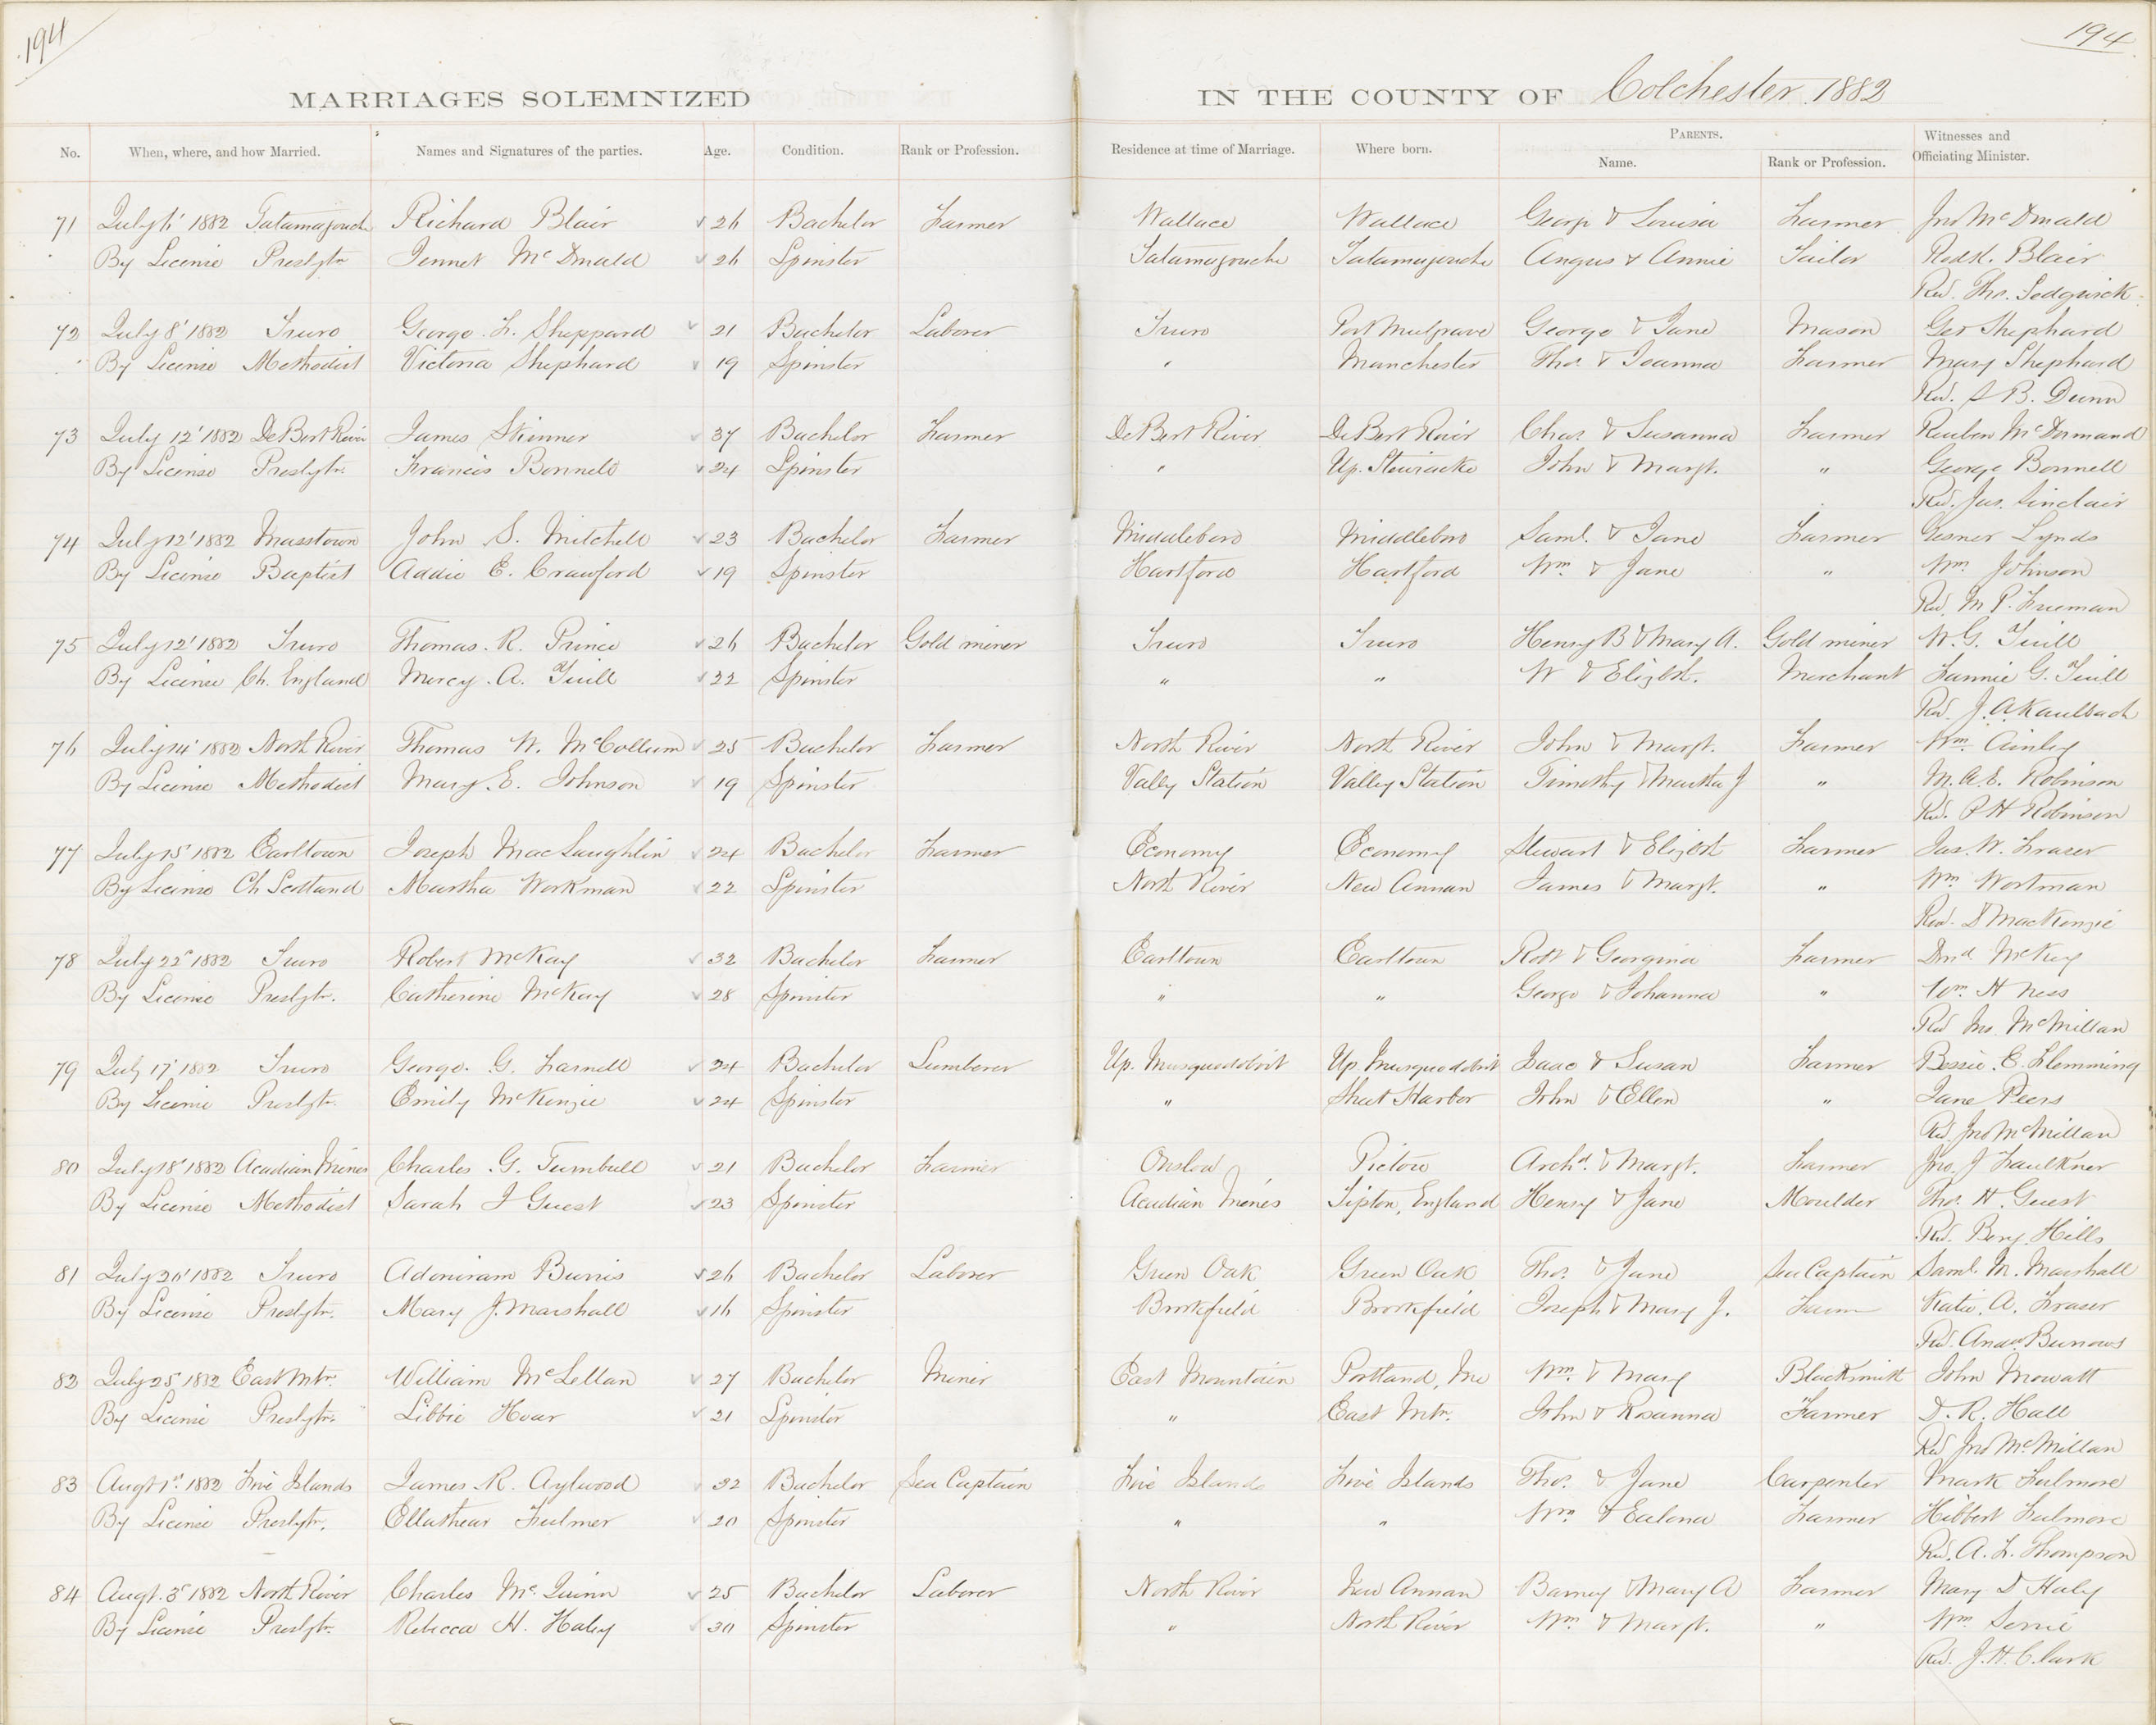 194
194
MARRIAGES SOLEMNIZED IN THE COUNTY OF Colchester 1882
No. When, where, and how Married. Names and Signatures of the parties. Age. Condition. Rank or Profession. Residence at time of Marriage. Where born. PARENTS. Name. Rank or Profession. Witnesses and Officiating Minister.
71 July 6' 1882 Tatamagouche Richard Blair 26 Bachelor Farmer Wallace Wallace George & Louisa Farmer Jno McDonald
By License Presbytn Jennet McDonald 26 Spinster Tatamagouche Tatamagouche Angus & Annie Tailor Rodk. Blair
Rev. Tho. Sedgwick
72 July 8' 1882 Truro George. L. Sheppard 21 Bachelor Laborer Truro Port Mulgrave George & Jane Mason Geo Shephard
By License Methodist Victoria Shephard 19 Spinster " Manchester Thos. & Joanna Farmer Mary Shephard
Rev. S B. Dunn
73 July 12' 1882 DeBert River James Skinner 37 Bachelor Farmer DeBert River DeBert River Chas. & Susanna Farmer Reuben McDormand
By License Presbytn. Francis Bonnell 24 Spinster " Up. Stewiacke John & Margt. " George Bonnell
Rev. Jas. Sinclair
74 July 12' 1882 Masstown John S. Mitchell 23 Bachelor Farmer Middleboro Middleboro Saml. & Jane Farmer Gesner Lynds
By License Baptist Addie E. Crawford 19 Spinster Hartford Hartford Wm. & Jane " Wm. Johnson
Rev. M. P. Freeman
75 July 12' 1882 Truro Thomas. R. Prince 26 Bachelor Gold miner Truro Truro Henry B & Mary A. Gold miner W. G. Yuill
By License Ch. England Mercy. A. Yuill 22 Spinster " " W & Elizbt. Merchant Fannie G. Yuill
Rev. J. A Kaulbach
76 July 14' 1882 North River Thomas W. McCollum 25 Bachelor Farmer North River North River John & Margt. Farmer Wm. Ainley
By License Methodist Mary. E. Johnson 19 Spinster Vally Station Valley Station Timothy & Martha J " M. A. E. Robinson
Rev. P H Robinson
77 July 15' 1882 Earltown Joseph MacLaughlin 24 Bachelor Farmer Economy Economy Stewart & Elizbt Farmer Jas. W. Fraser
By License Ch Scotland Martha Workman 22 Spinster North River New Annan James & Margt. " Wm Wortman
Rev. D MacKenzie
78 July 22d 1882 Truro Robert McKay 32 Bachelor Farmer Earltown Earltown Robt & Georgina Farmer Dond McKay
By License Presbytn. Catherine McKay 28 Spinster " " George & Johanna " Wm. H Ness
Rev Jno. McMillan
79 July 17' 1882 Truro George. G. Farnell 24 Bachelor Lumberer Up. Musquodobit Up. Musquodobit Isaac & Susan Farmer Bessie. E. Flemming
By License Presbytn. Emily McKenzie 24 Spinster " Sheet Harbor John & Ellen " Jane Peers
Rev. Jno McMillan
80 July 18' 1882 Acadian Mines Charles. G. Turnbull 21 Bachelor Farmer Onslow Pictou Archd. & Margt. Farmer Jno. J Faulkner
By License Methodist Sarah J Guest 23 Spinster Acadian Mines Tipton, England Henry & Jane Moulder Tho. H. Guest
Rev. Benj. Hills
81 July 20' 1882 Truro Adoniram Burris 26 Bachelor Laborer Green Oak Green Oak Thos. & Jane Sea Captain Saml. M. Marshall
By License Presbytn. Mary J. Marshall 16 Spinster Brookfield Brookfield Joseph & Mary J. Farm Katie. A. Fraser
Rev. Andw Burrows
82 July 25' 1882 East Mtn. William McLellan 27 Bachelor Miner East Mountain Portland, Me Wm. & Mary Blacksmith John Mowatt
By License Presbytn. Libbie Hoar 21 Spinster " East Mtn. John & Rosanna Farmer D. R. Hall
Rev Jno McMillan
83 Augt 1st. 1882 Five Islands James. R. Aylwood 32 Bachelor Sea Captain Five Islands Five Islands Thos. & Jane Carpenter Mark Fulmore
By License Presbytn. Ellathear Fulmer 20 Spinster " " Wm & Ealona Farmer Hibbert Fulmore
Rev. A. L. Thompson
84 Augt. 3d 1882 North River Charles Mc.Quinn 25 Bachelor Laborer North River New Annan Barney & Mary A Farmer Mary D Haly
By License Presbytn. Rebecca H. Haley 30 Spinster " North River Wm. & Margt. " Wm
Rev. J. H. Clark